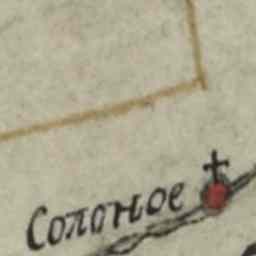 Солоное